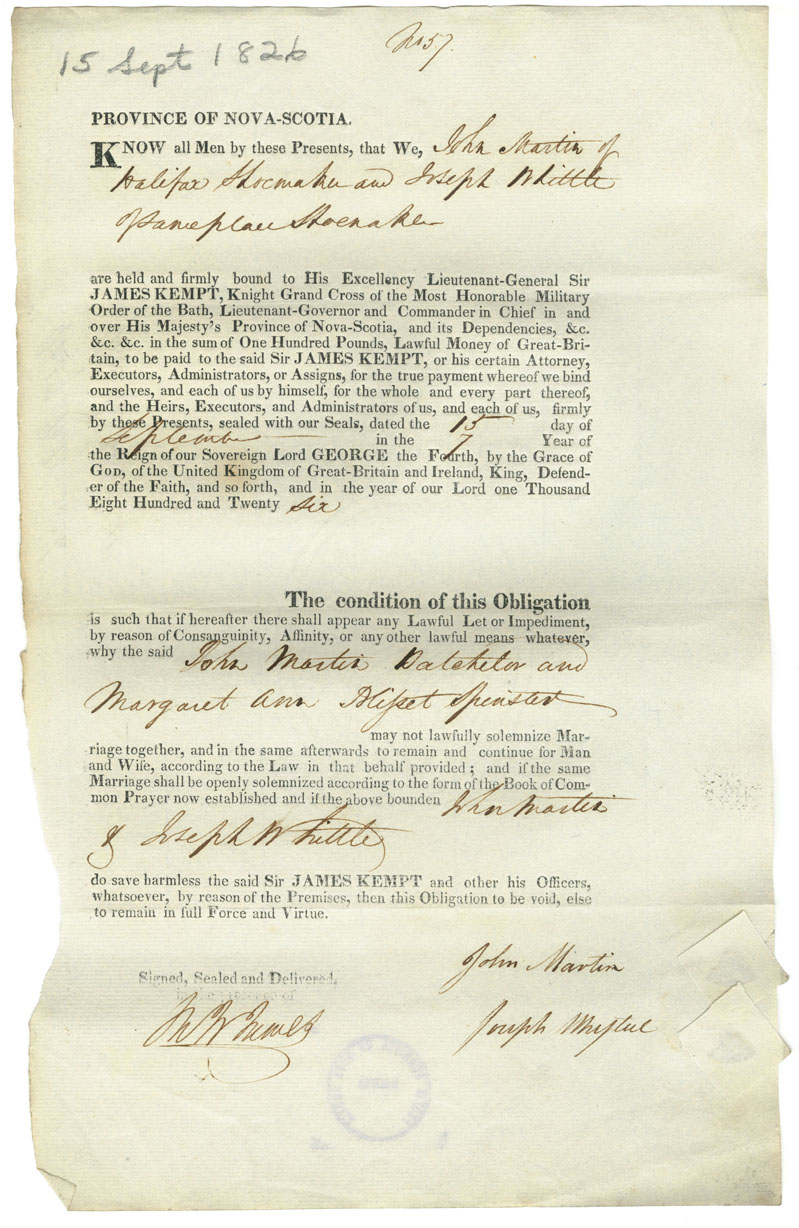 15 Sept 1826
No 57.
PROVINCE OF NOVA-SCOTIA.
KNOW all Men by these Presents, that We, John Martin of
Halifax Shoemaker and Joseph Whittle
of same place Shoemaker
are held and firmly bound to His Excellency Lieutenant-General Sir
JAMES KEMPT, Knight Grand Cross of the Most Honorable Military
Order of the Bath, Lieutenant-Governor and Commander in Chief in and
over His Majesty's Province of Nova-Scotia, and its Dependencies, &c.
&c. &c. in the sum of One Hundred Pounds, Lawful Money of Great-Bri-
tain, to be paid to the said Sir JAMES KEMPT, or his certain Attorney,
Executors, Administrators, or Assigns, for the true payment whereof we bind
ourselves, and each of us by himself, for the whole and every part thereof,
and the Heirs, Executors, and Administrators of us, and each of us, firmly
by these Presents, sealed with our Seals, dated the 15 day of
September in the 7 Year of
the Reign of our Sovereign Lord GEORGE the Fourth, by the Grace of
GOD, of the United Kingdom of Great-Britain and Ireland, King, Defend-
er of the Faith, and so forth, and in the year of our Lord one Thousand
Eight Hundred and Twenty Six
The condition of this Obligation
is such that if hereafter there shall appear any Lawful Let or Impediment,
by reason of Consanguinity, Affinity, or any other lawful means whatever,
why the said John Martin Batchelor and
Margaret Ann Blisset Spinster
may not lawfully solemnize Mar-
riage together, and in the same afterwards to remain and continue for Man
and Wife, according to the Law in that behalf provided; and if the same
Marriage shall be openly solemnized according to the form of the Book of Com-
mon Prayer now established and if the above bounden John Martin
& Joseph Whittle
do save harmless the said Sir JAMES KEMPT and other his Officers,
whatsoever, by reason of the Premises, then this Obligation to be void, else
to remain in full Force and Virtue.
John Martin
Signed, Sealed and Delivered,
in the presence of
Joseph